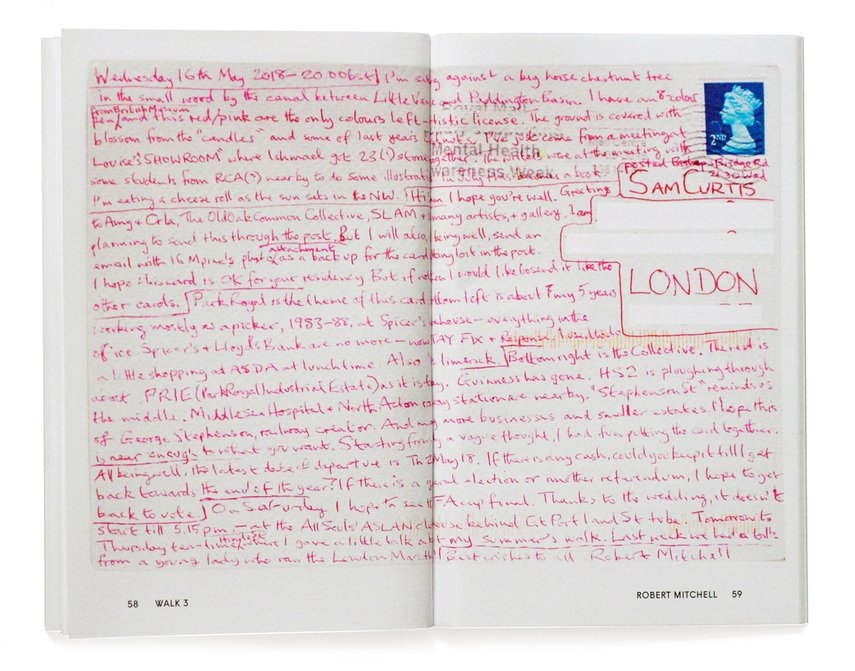 Wednesday 16th May 2018 - 20.00 bst / I'm sitting against a big horse chestnut tree
in the small wood by the canal between Little Venice and Paddington Basin. I have an 8-color
from British Museum
pen, and this red/pink are the only colours left - artistic license. The ground is covered with
blossom from the "candles" and some of last years I've just come from a meeting at
Louise's "SHOWROOM" where Ishmael got 23(?) together. The were at the meeting with
some students from RCA(?) nearby to do some a book
I'm eating a cheese roll as the sun sets in the NW. I hope you're well. Greetings
to Amy + Orla, The Old Oak Common Collective, SLAM + many artists, + gallery. I am
planning to send this through the post. But I will also, being well, send an
attachment
email with as a back up for the card getting lost in the post.
I hope this card is OK for your residency But if not I would like to send it like the
other cards. Park Royal is the theme of this card left is about my 5 years
working mostly as a picker, 1983-88, at Spicer's - everything in the
office. Spicer's + Lloyds Bank are no more - now FIX + Response
a little shopping at ASDA at lunchtime. Also limerick. Bottom right is the Collective. The rest is
PRIE (Park Royal Industrial Estate) as it is today. Guinness has gone. HS2 is ploughing through
the middle. Middlesex Hospital + North Acton railway station are nearby. "Stephenson St" reminds us
of George Stephenson, railway creator. And many more businesses and smaller estates. I hope this
is near enough to what you want. Starting from a vague thought, I had fun putting the card together.
All being well, the latest date of departure is Th May 18. If there is any cash, could you keep it till I get
back towards the end of the year? If there is a general election or another referendum, I hope to get
back to vote. On Saturday I hope to see FA cup final. Thanks to the wedding, it doesn't
start till 5.15pm - at the All Souls' ASLAN behind Gt Portland St tube. Tomorrow is
Thursday I gave a little talk about my summer's walk. Last week we had a talk
from a young lady who ran the London Marathon Best wishes to all Robert Mitchell
2ND
Mental Health
Awareness Week
SAM CURTIS
LONDON
58 WALK 3
ROBERT MITCHELL 59